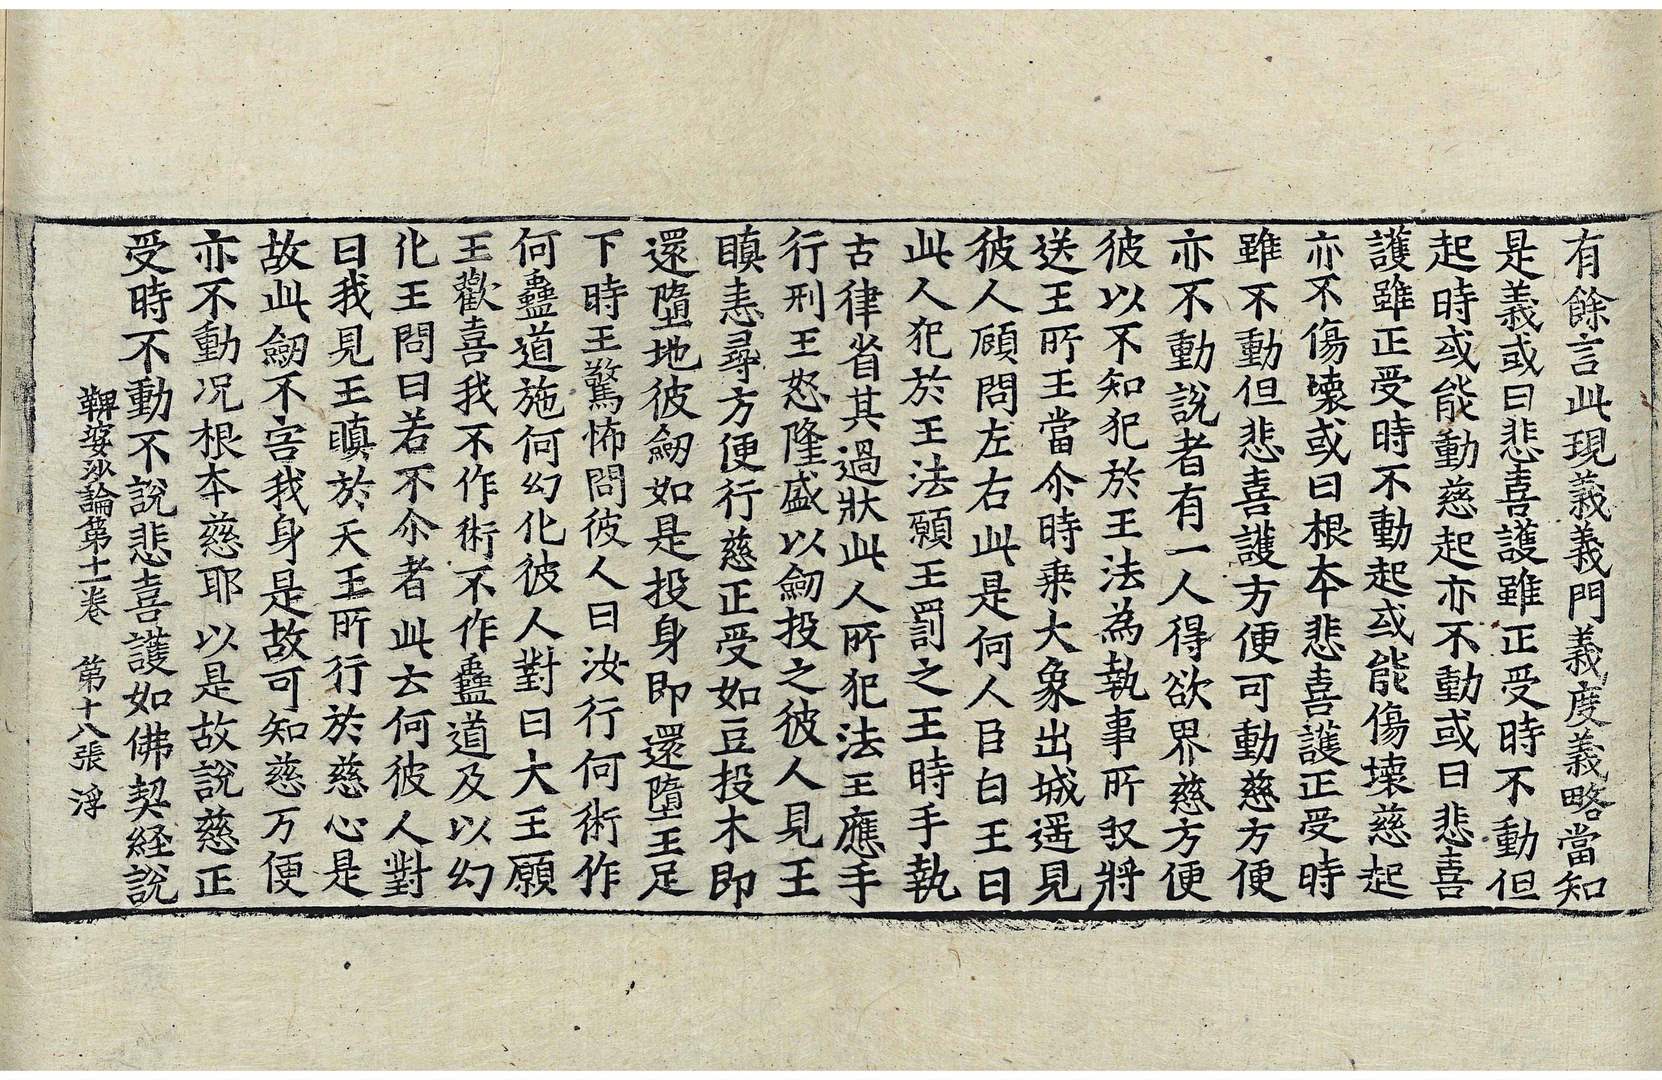 有餘言此現義義門義度義略當知
是義或曰悲喜護雖正受時不動但
起時或能動慈起亦不動或曰悲喜
護雖正受時不動起或能傷壞慈起
亦不傷壞或曰根本悲喜護正受時
雖不動但悲喜護方便可動慈方便
亦不動說者有一人得欲界慈方便
彼以不知犯於王法為執事所收將
送王所王當尒時乘大象出城遥見
彼人顧問左右此是何人臣白王曰
此人犯於王法願王罰之王時手執
古律省其過狀此人所犯法王應手
行刑王怒隆盛以劒投之彼人見王
瞋恚尋方便行慈正受如豆投木即
還墮地彼劒如是投身即還墮王足
下時王驚怖問彼人曰汝行何術作
何蠱道施何幻化彼人對曰大王願
王歡喜我不作術不作蠱道及以幻
化王問曰若不尒者此云何彼人對
曰我見王瞋於天王所行於慈心是
故此劒不害我身是故可知慈方便
亦不動况根本慈耶以是故說慈正
受時不動不說悲喜護如佛契経說
鞞婆沙論第十一卷 第十八張 浮